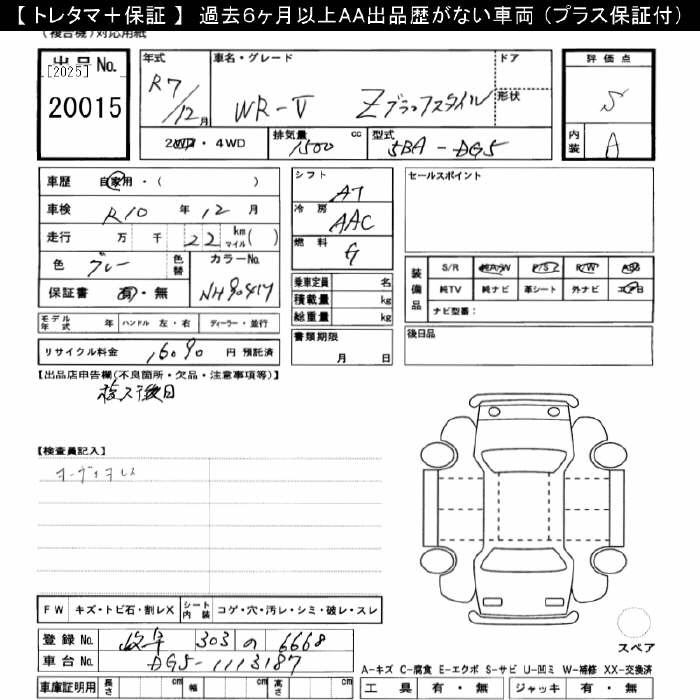 【 トレタマ＋保証 】 過去6ヶ月以上AA出品歴がない車両 (プラス保証付)
(複合機)対応用紙
出品No.
[2025]
20015
年式
R7/12月
車名・グレード
WR-V Zブラックスタイル
ドア
形状
2WD・4WD
排気量 1500 cc
型式 5BA-DG5
評価点
S
内装 A
車歴 自家用・( )
車検 R10 年 12 月
走行 万 千 22 km マイル( )
色 グレー
色替
カラーNo. NH904M
保証書 有・無
モデル年式 年 ハンドル 左・右 ディーラー・並行
リサイクル料金 16090 円 預託済
シフト AT
冷房 AAC
燃料 G
乗車定員 名
積載量 kg
総重量 kg
書類期限
月 日
セールスポイント
装備品
S/R 純A/W P/S P/W ABS
純TV 純ナビ 革シート 外ナビ エアB
ナビ型番:
後日品
【出品店申告欄(不良箇所・欠品・注意事項等)】
検査員記入
【検査員記入】
コーディオレス
FW キズ・トビ石・割レX シート内装 コゲ・穴・汚レ・シミ・破レ・スレ
登録No. 岐阜 303 の 6668
車台No. DG5-1113187
車庫証明用 長さ cm 幅 cm 高さ cm
スペア
A-キズ C-腐食 E-エクボ S-サビ U-凹ミ W-補修 XX-交換済
工具 有・無 ジャッキ 有・無